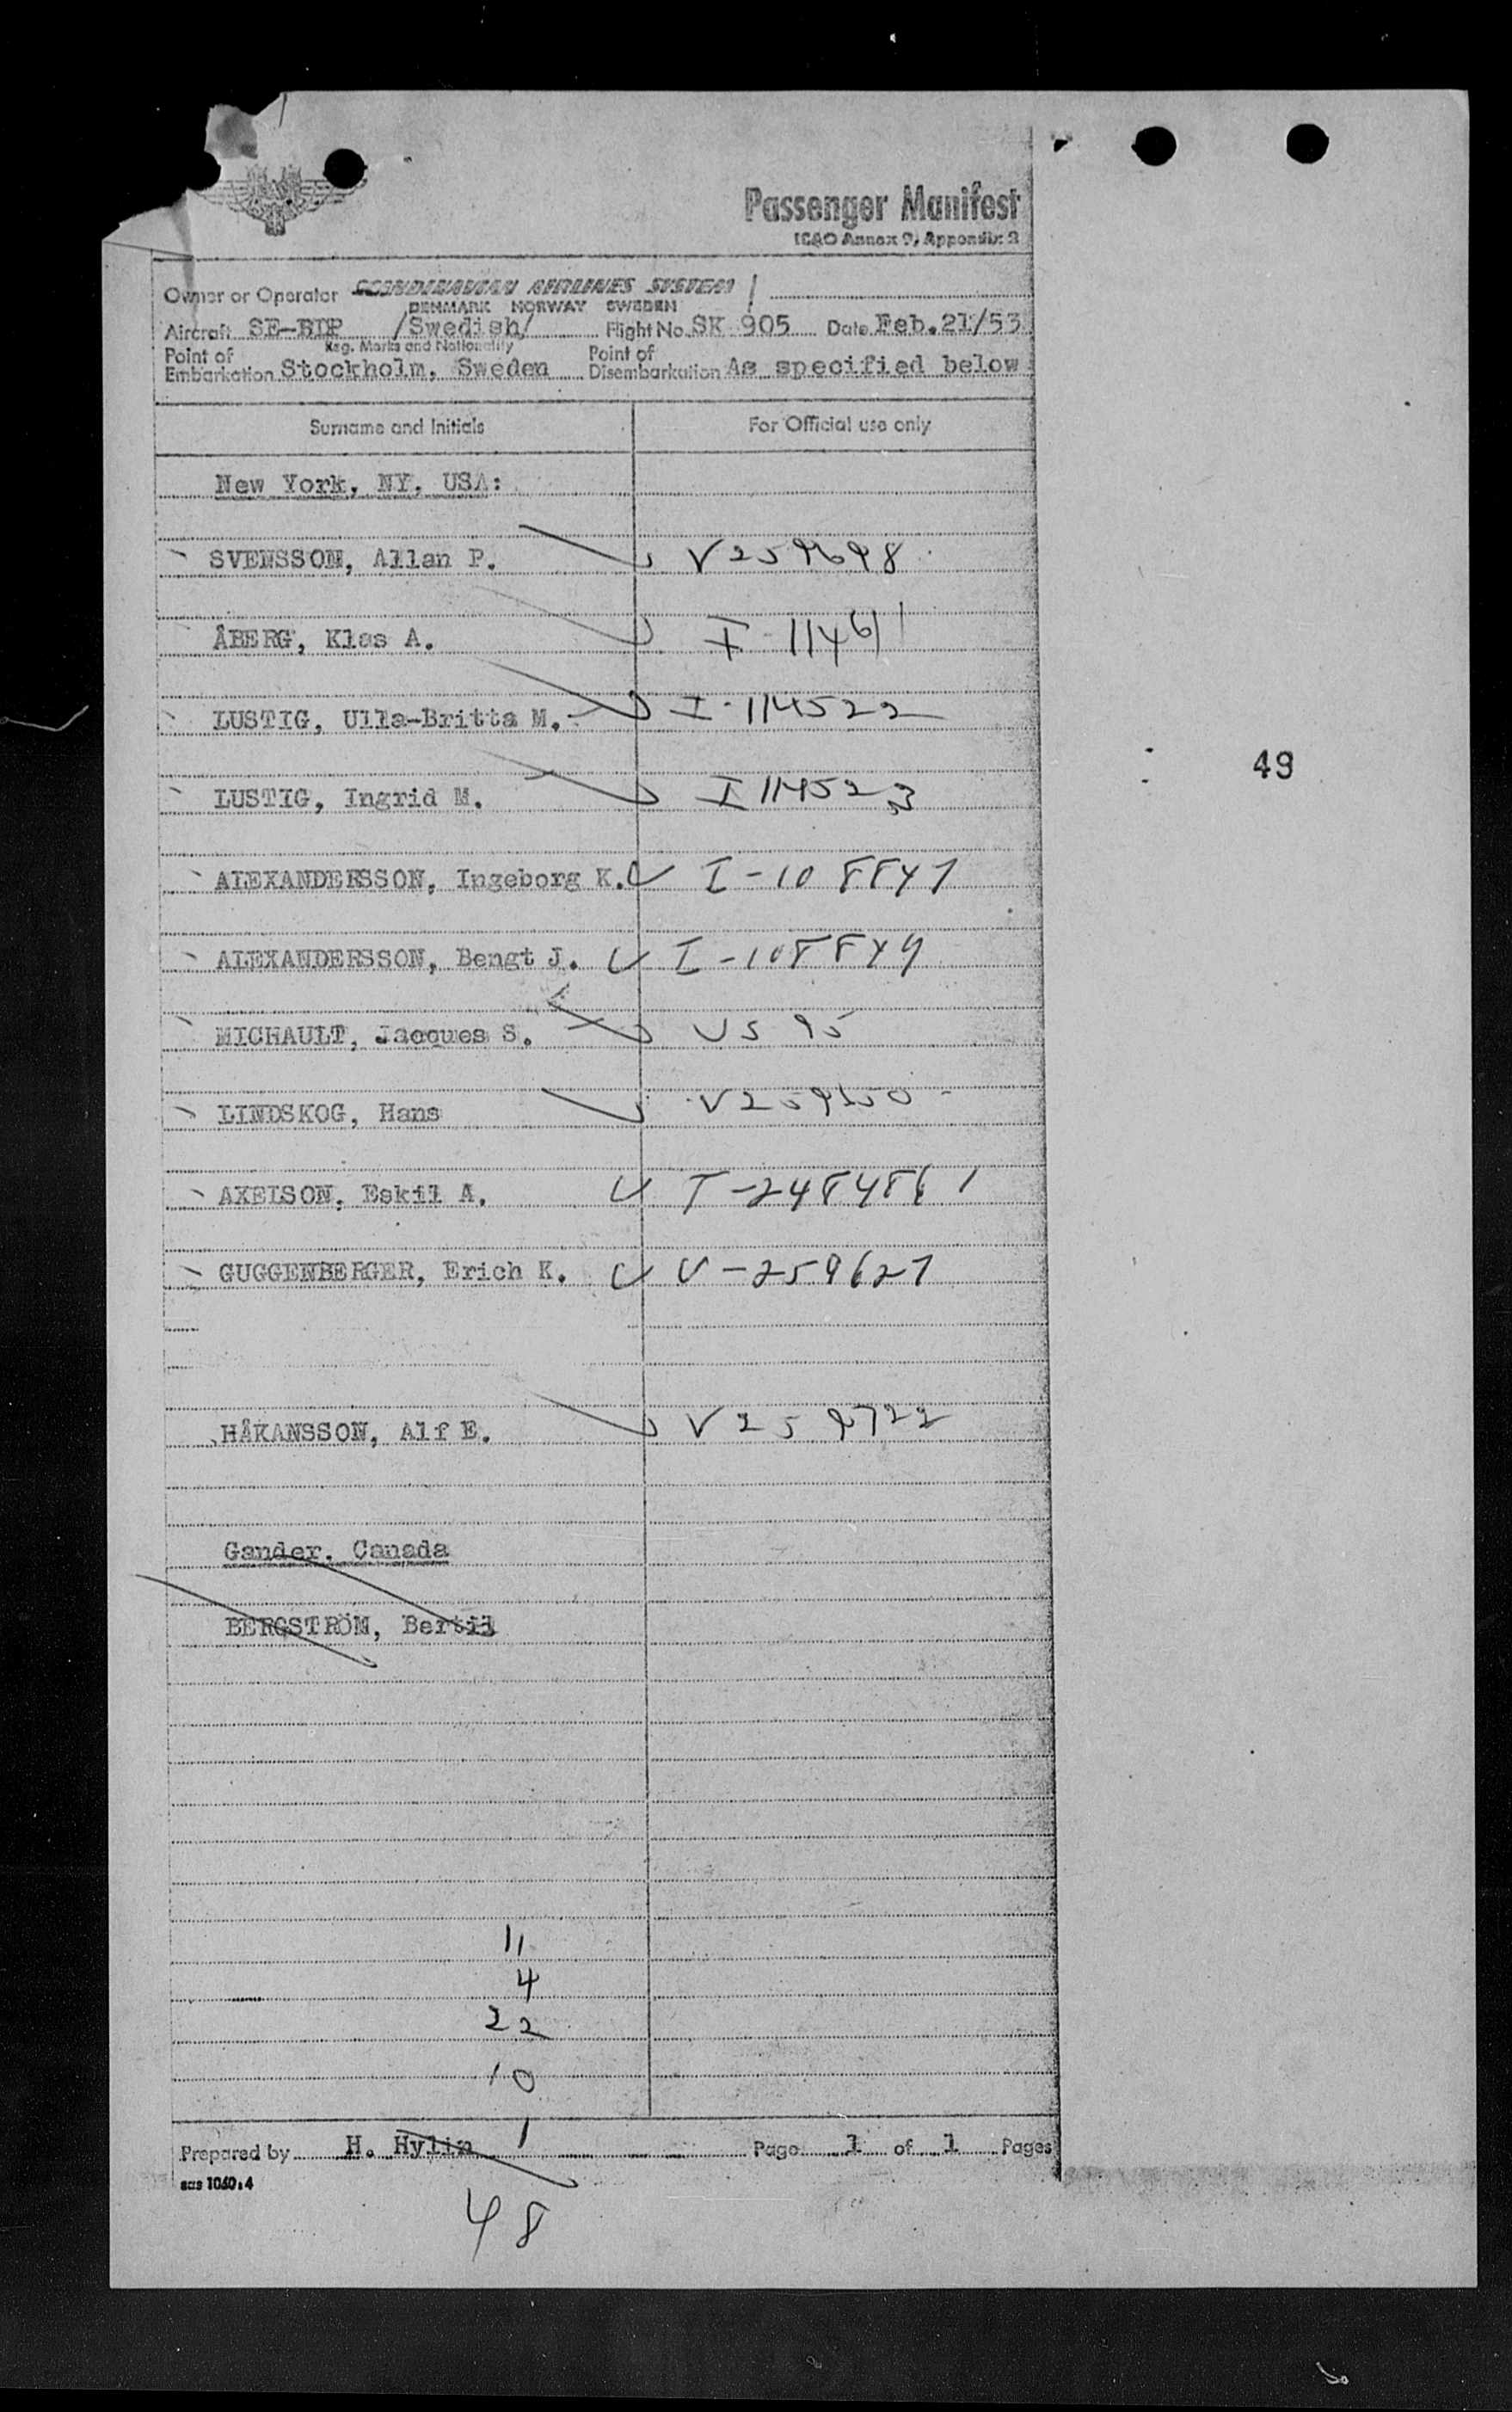 Passenger Manifest
ICAO Annex 9, Appendix 3
Owner or Operator SCANDINAVIAN AIRLINES SYSTEM
DENMARK NORWAY SWEDEN
Aircraft SE-BDP /Swedish/ Flight No. SK 905 Date Feb. 21/53
Reg. Marks and Nationality
Point of Embarkation Stockholm, Sweden Point of Disembarkation As specified below
Surname and Initials For Official use only
New York, NY. USA:
SVENSSON, Allan P. V259698
ÅBERG, Klas A. I-11461
LUSTIG, Ulla-Britta M. I-114522
LUSTIG, Ingrid M. I 114523
49
ALEXANDERSSON, Ingeborg K. I-108847
ALEXANDERSSON, Bengt J. I-108849
MICHAULT, Jacques S.
LINDSKOG, Hans
AXELSON, Eskil A.
GUGGENBERGER, Erich K. V-259627
HÅKANSSON, Alf E. V259722
Gander, Canada
BERGSTRÖM, Bertil
11
4
22
10
1
Prepared by H. Hylin Page 1 of 1 Pages
sas 1060:4
48